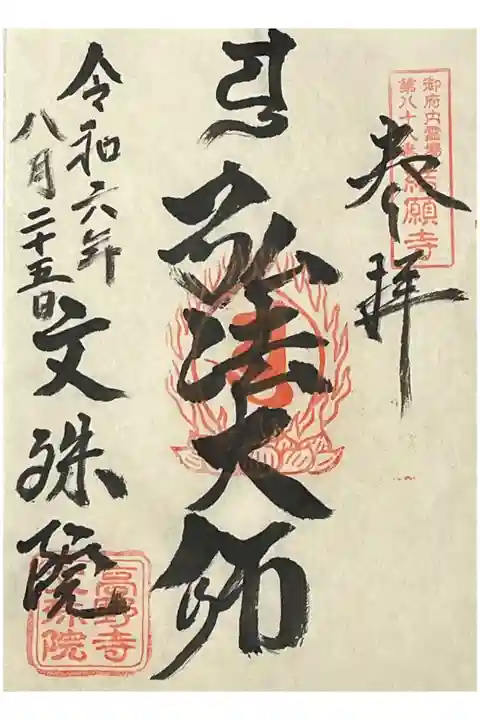 奉拝
御府内霊場
第八十八番 結願寺
弘法大師
令和六年
八月二十五日
文殊院
高野寺
文殊院